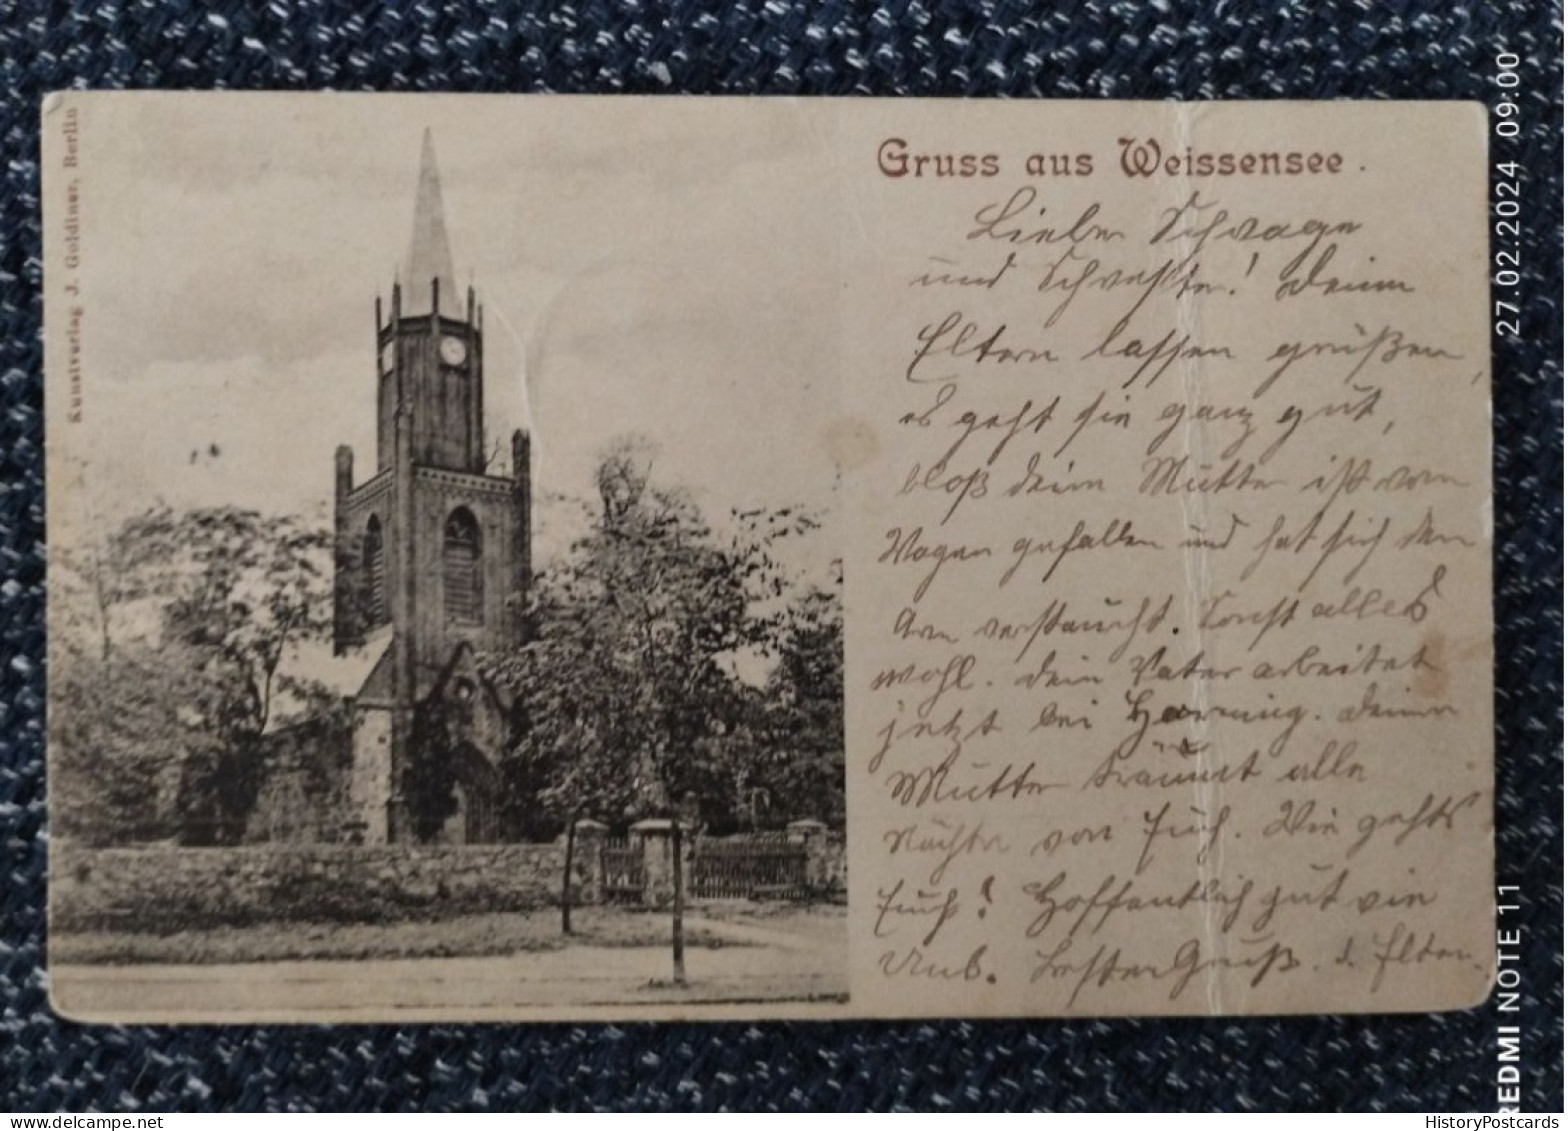 Kunstverlag J. Goldiner, Berlin
Gruss aus Weissensee.
Lieber Schwager
und Schwester! Deine
Eltern lassen grüßen,
es geht sie ganz gut,
bloß deine Mutter ist vom
Wagen gefallen und hat sich den
Arm verstaucht. Sonst alles
wohl. Dein Vater arbeitet
jetzt bei Hornung. Deine
Mutter träumt alle
Nächte von Euch. Wie gehts
Euch? Hoffentlich gut wie
Uns. Bester Gruß. d. Eltern.
27.02.2024 09:00
REDMI NOTE 11
HistoryPostcards